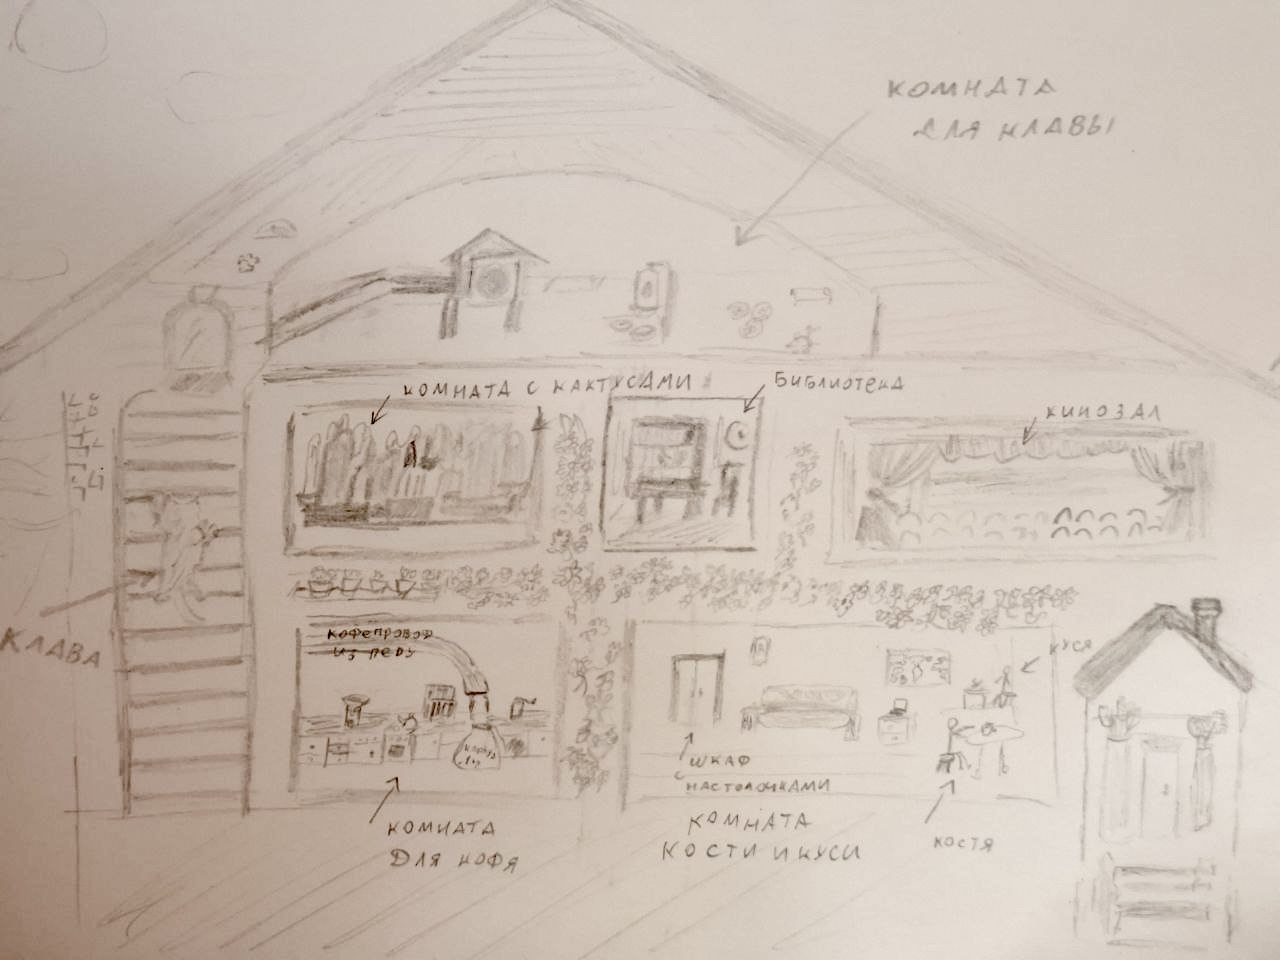 КОМНАТА
ДЛЯ КЛАВЫ
КОМНАТА С КАКТУСАМИ
БИБЛИОТЕКА
КИНОЗАЛ
КЛАВА
КОФЕПРОВОД
ИЗ ПЕРУ
КУСЯ
ШКАФ
НАСТОЛЧКАМИ
КОМНАТА
ДЛЯ КОФЯ
КОМНАТА
КОСТИ И КУСИ
КОСТЯ